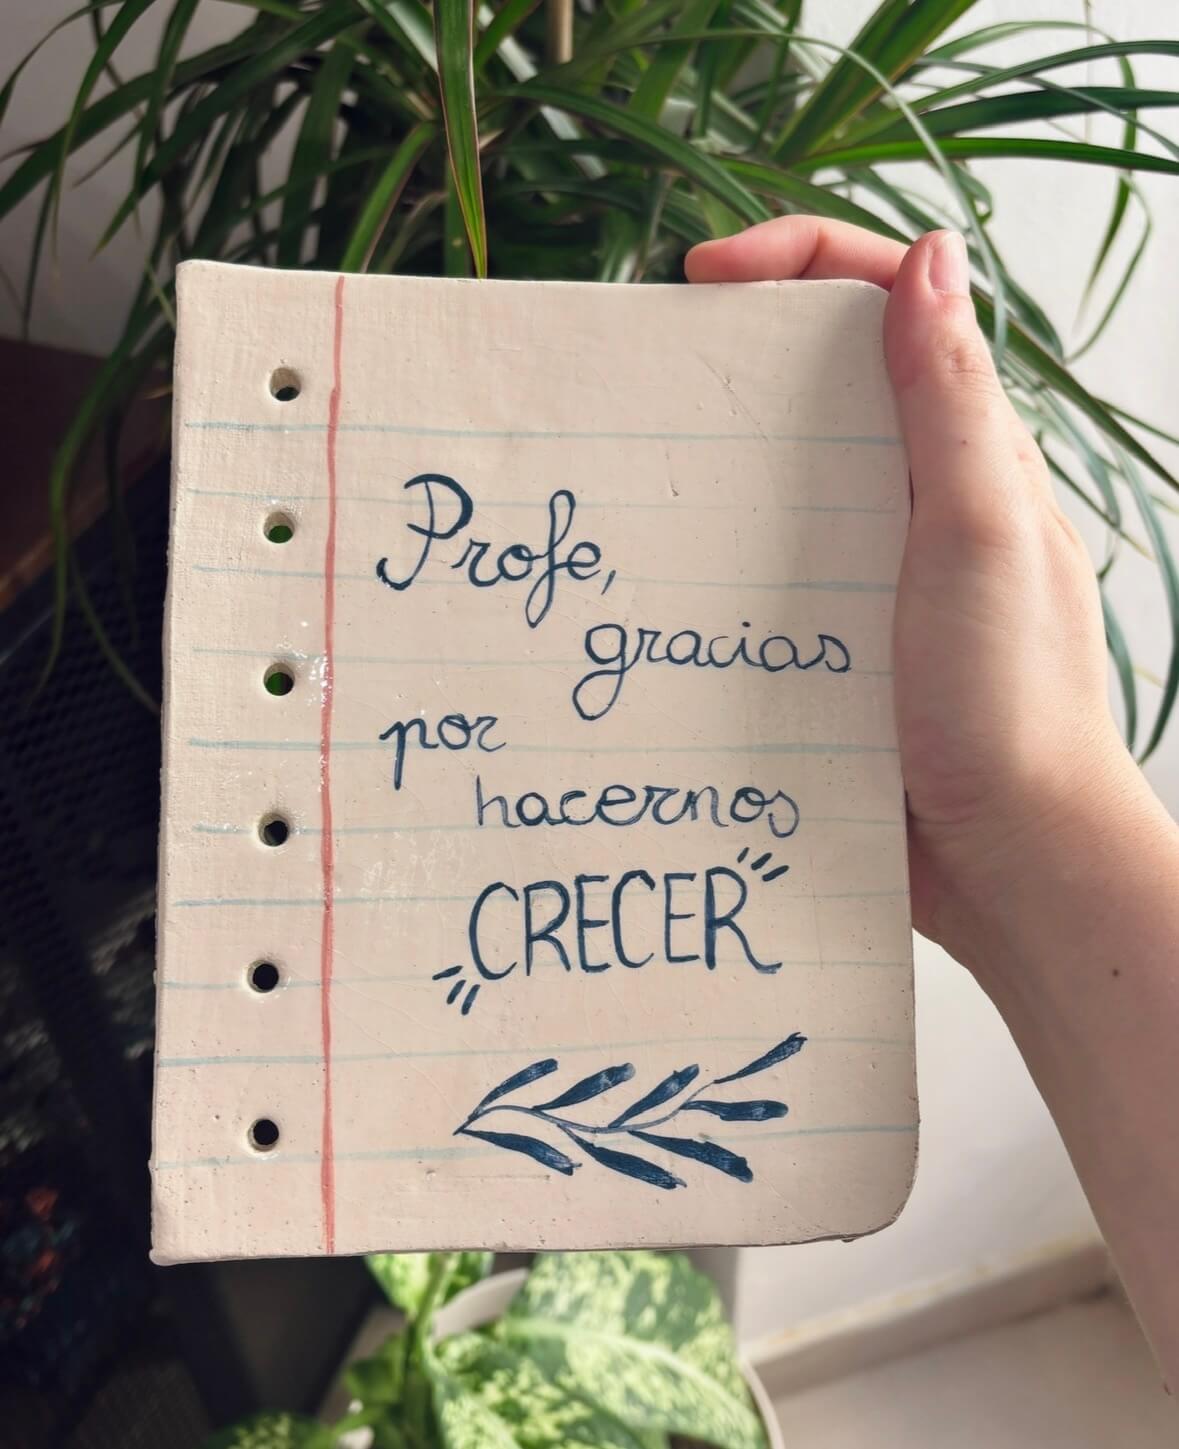 Profe,
gracias
por
hacernos
CRECER